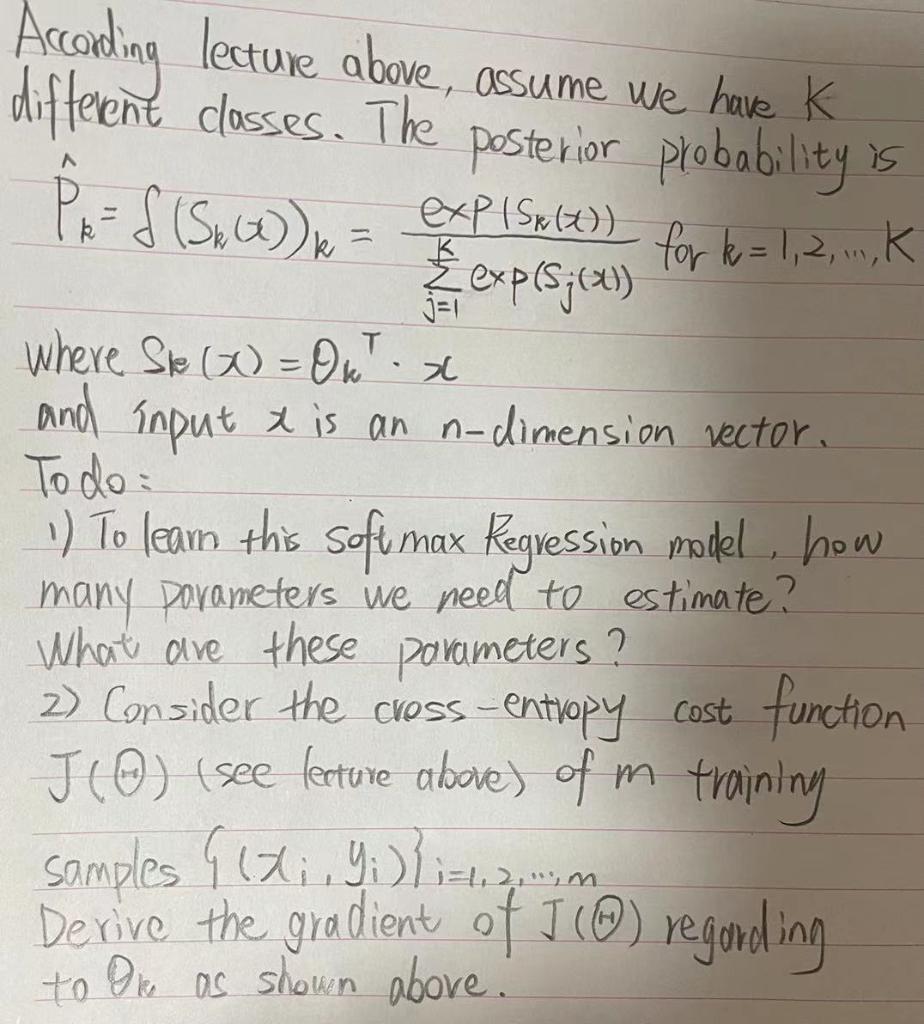 According lecture above, assume we have K
different classes. The posterior probability is
P̂k = δ(Sk(x))k = exp(Sk(x)) / Σ_{j=1}^{K} exp(Sj(x)) for k = 1,2,...,K
where Sk(x) = Θk^T · x
and input x is an n-dimension vector.
To do:
1) To learn this softmax Regression model, how
many parameters we need to estimate?
What are these parameters?
2) Consider the cross-entropy cost function
J(Θ) (see lecture above) of m training
samples {(xi, yi)}i=1,2,...,m
Derive the gradient of J(Θ) regarding
to Θk as shown above.